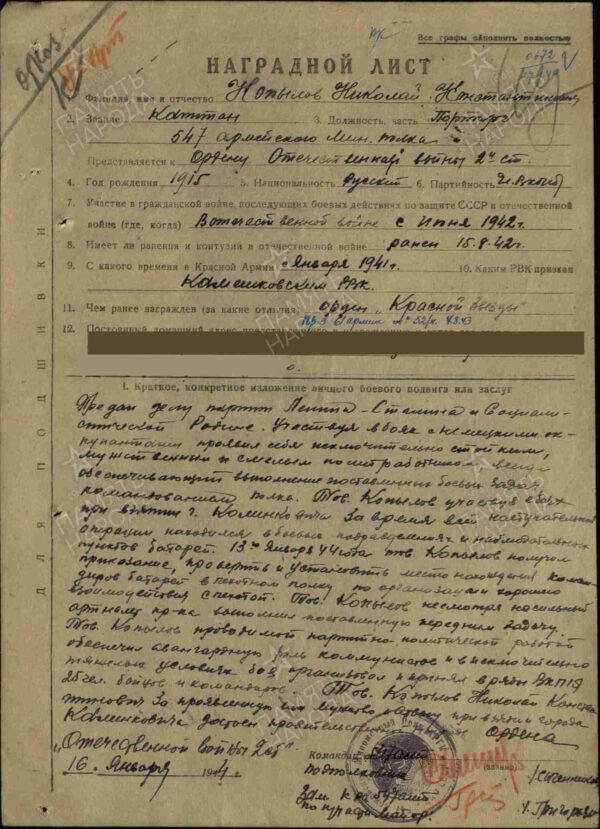 Все графы заполнять полностью
НАГРАДНОЙ ЛИСТ
1. Фамилия, имя и отчество Копылов Николай Константинович
2. Звание Капитан 3. Должность, часть Парторг
547 армейского Мин. полка
Представляется к Ордену Отечественной войны 2й ст.
4. Год рождения 1915 5. Национальность Русский 6. Партийность Чл. ВКП(б)
7. Участие в гражданской войне, последующих боевых действиях по защите СССР и отечественной
войне (где, когда) В отечественной войне с июня 1942г.
8. Имеет ли ранения и контузии в отечественной войне ранен 15.8.42г.
9. С какого времени в Красной Армии с Января 1941г. 10. Каким РВК призван
Камешковским РВК.
11. Чем ранее награжден (за какие отличия) орден „Красной Звезды"
Пр-з 61 армии № 52/н
12. Постоянный домашний адрес
I. Краткое, конкретное изложение личного боевого подвига или заслуг
Предан делу партии Ленина-Сталина и Социали-
стической Родине. Участвуя в боях с немецкими ок-
купантами проявил себя исключительно стойким,
мужественным и смелым политработником
обеспечивающий выполнение поставленных боевых задач
командованием полка. Тов. Копылов участвуя в боях
при взятии г. Калинковича за время всей наступательной
операции находился в боевых подразделениях и наблюдательных
пунктов батарей. 13го Января 44 года тов. Копылов получил
приказание, проверить и установить место нахождения коман-
диров батарей в пехотном полку по организации хорошего
взаимодействия с пехотой. Тов. Копылов несмотря на сильный
артиллер. пр-ка выполнил поставленную перед ним задачу.
Тов. Копылов проводимой партийно политической работой
обеспечил авангардную роль коммунистов и в исключительно
тяжелых условиях боя организовал и принял в ряды ВКП(б)
25 чел. бойцов и командиров. Тов. Копылов Николай Конста-
нтинович за проявленную им мужество и отвагу при взятии города
Калинковича достоин правительственной Ордена
„Отечественной войны 2й ст"
16. Января 1944 г.
Командир
подполковник
Зам. к-ра
по п/части майор
ДЛЯ ПОДШИВКИ
ПАМЯТЬ НАРОДА